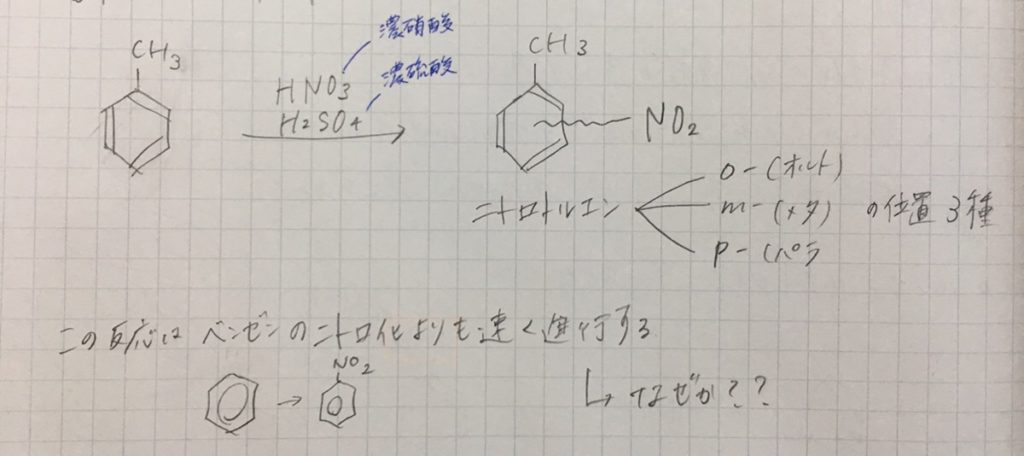 濃硝酸
CH3
HNO3
濃硫酸
H2SO4
CH3
NO2
ニトロトルエン
o-(オルト)
m-(メタ) の位置3種
p-(パラ
この反応はベンゼンのニトロ化よりも速く進行する
NO2
なぜか??